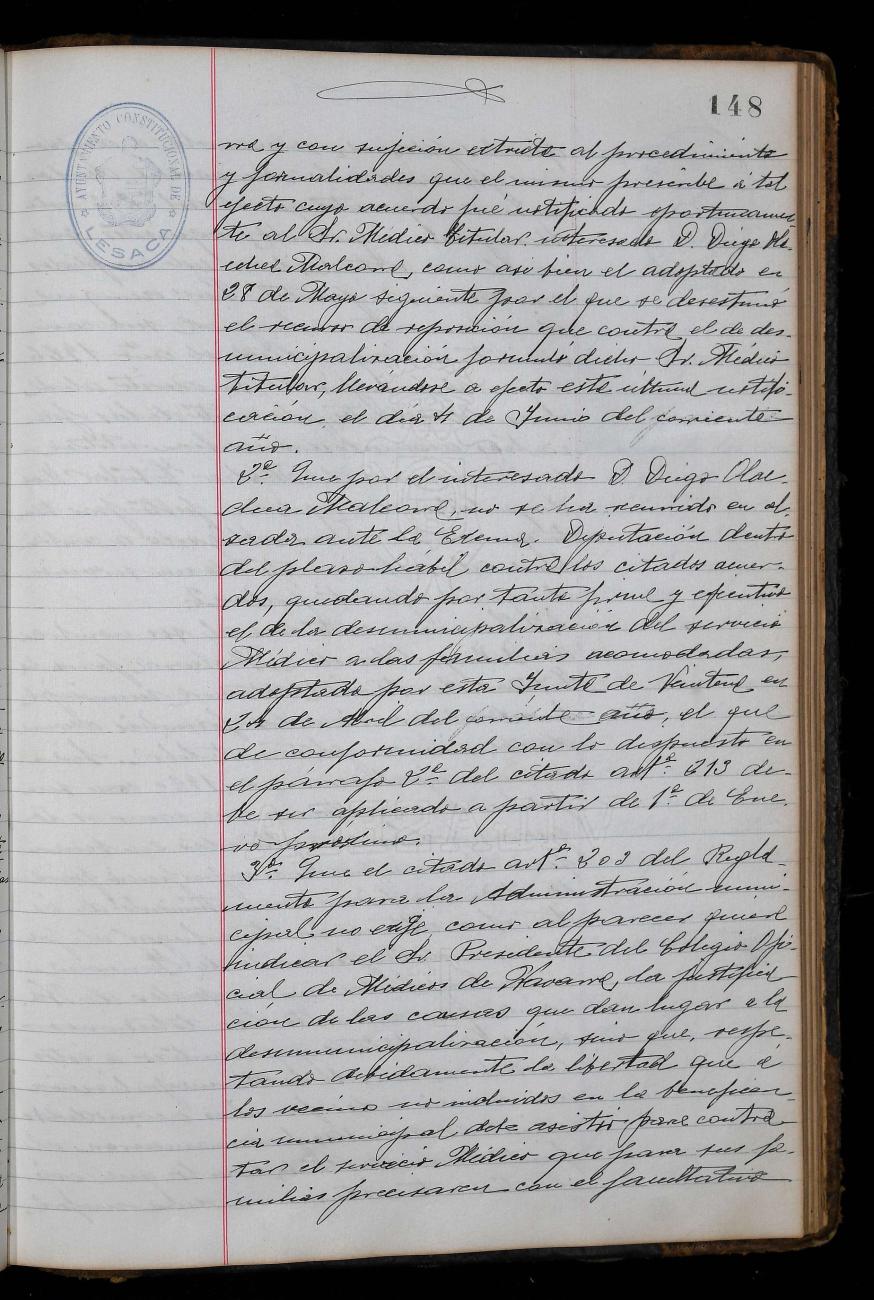 148
AYUNTAMIENTO CONSTITUCIONAL DE
LESACA
rra y con sujeción estricta al procedimiento
y formalidades que el mismo prescribe á tal
efecto cuyo acuerdo fué notificado oportunamen-
te al Sr. Medico titular interesado D. Diego Ola-
echea Malcorra, como asi bien el adoptado en
28 de Mayo siguiente por el que se desestimó
el recurso de reposición que contra el de des-
municipalización formuló dicho Sr. Médico
titular, llevándose a efecto esta última notifi-
cación el día 4 de Junio del corriente
año.
2º Que por el interesado D. Diego Olae-
chea Malcorra, no se ha recurrido en al-
zada ante la Excma. Diputación dentro
del plazo hábil contra los citados acuer-
dos, quedando por tanto firme y ejecutivo
el de la desmunicipalización del servicio
Médico a las familias acomodadas,
adoptado por esta Junta de Veintena en
24 de Abril del corriente año, el que
de conformidad con lo dispuesto en
el párrafo 2º del citado artº 313 de-
be ser aplicado a partir de 1º de Ene-
ro próximo.
3º Que el citado artº 303 del Regla-
mento para la Administración muni-
cipal no exije, como al parecer quiere
indicar el Sr. Presidente del Colegio Ofi-
cial de Médicos de Navarra, la justifica
ción de las causas que dan lugar a la
desmunicipalización, sino que, respe-
tando debidamente la libertad que á
los vecinos no incluidos en la beneficen-
cia municipal debe asistir para contra-
tar el servicio Médico que para sus fa-
milias precisaren con el facultativo